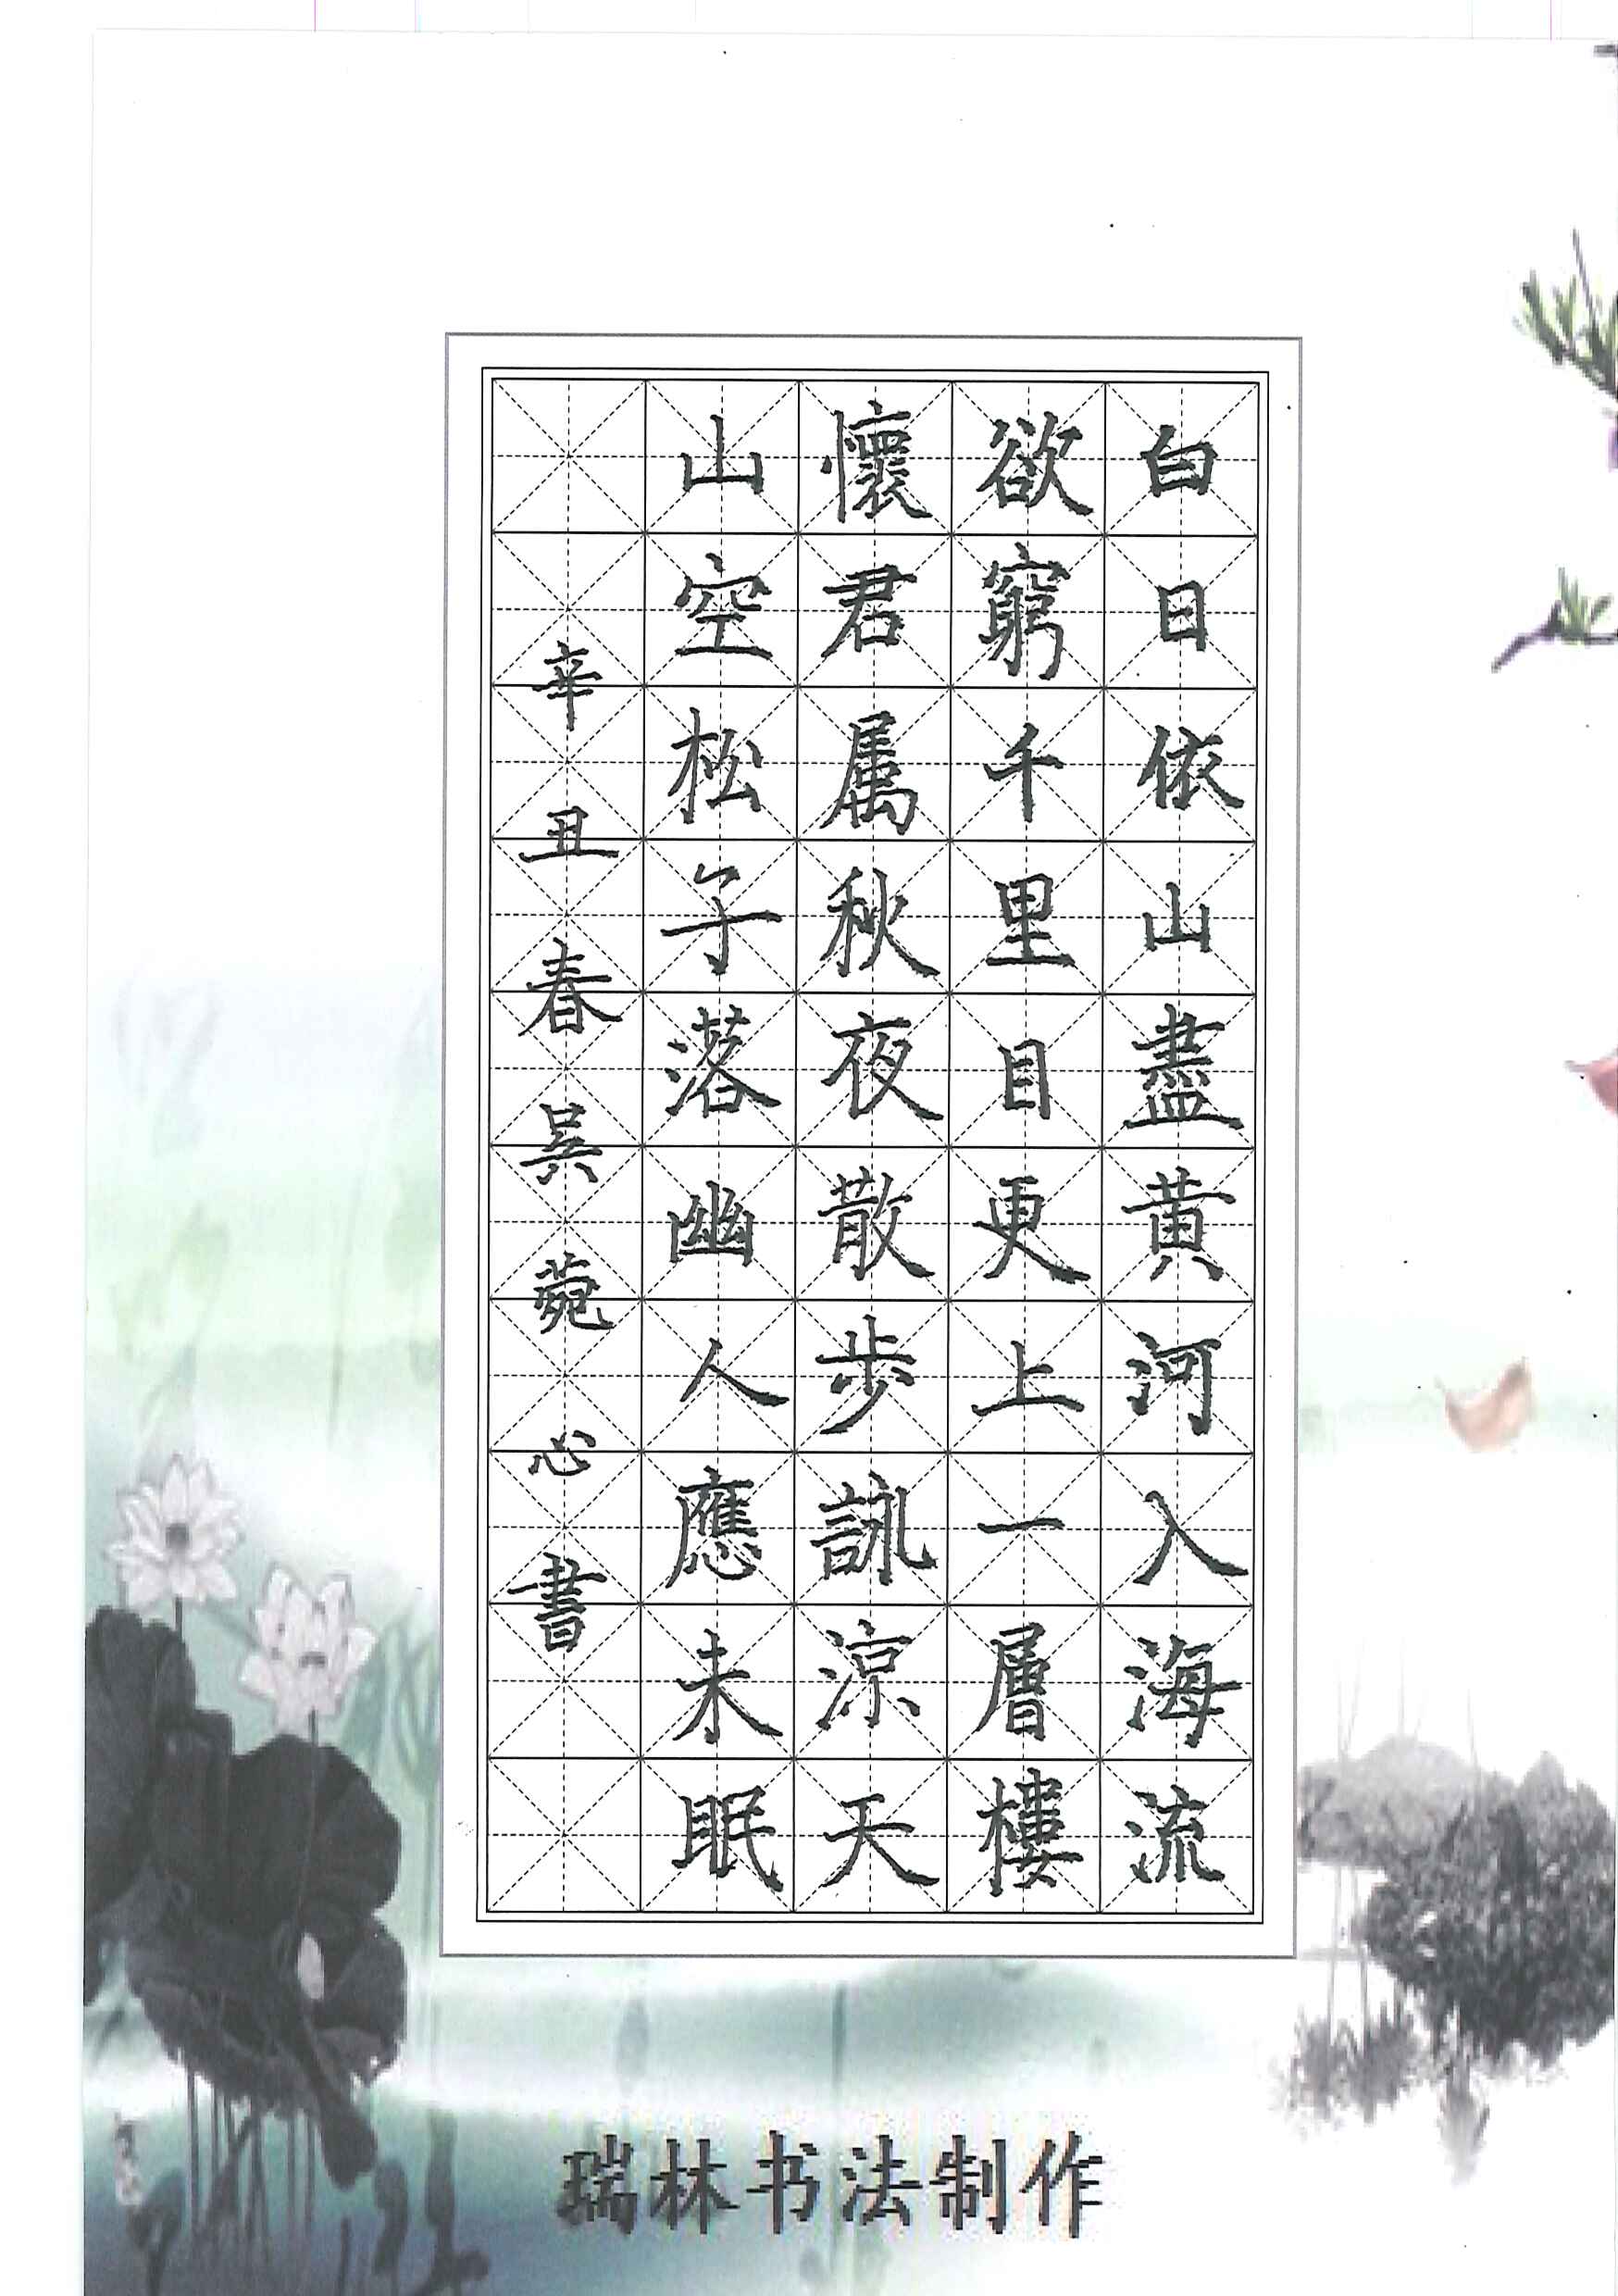 白日依山盡黄河入海流
欲窮千里目更上一層樓
懷君属秋夜散步詠涼天
山空松子落幽人應未眠
辛丑春吴菀心書
瑞林书法制作